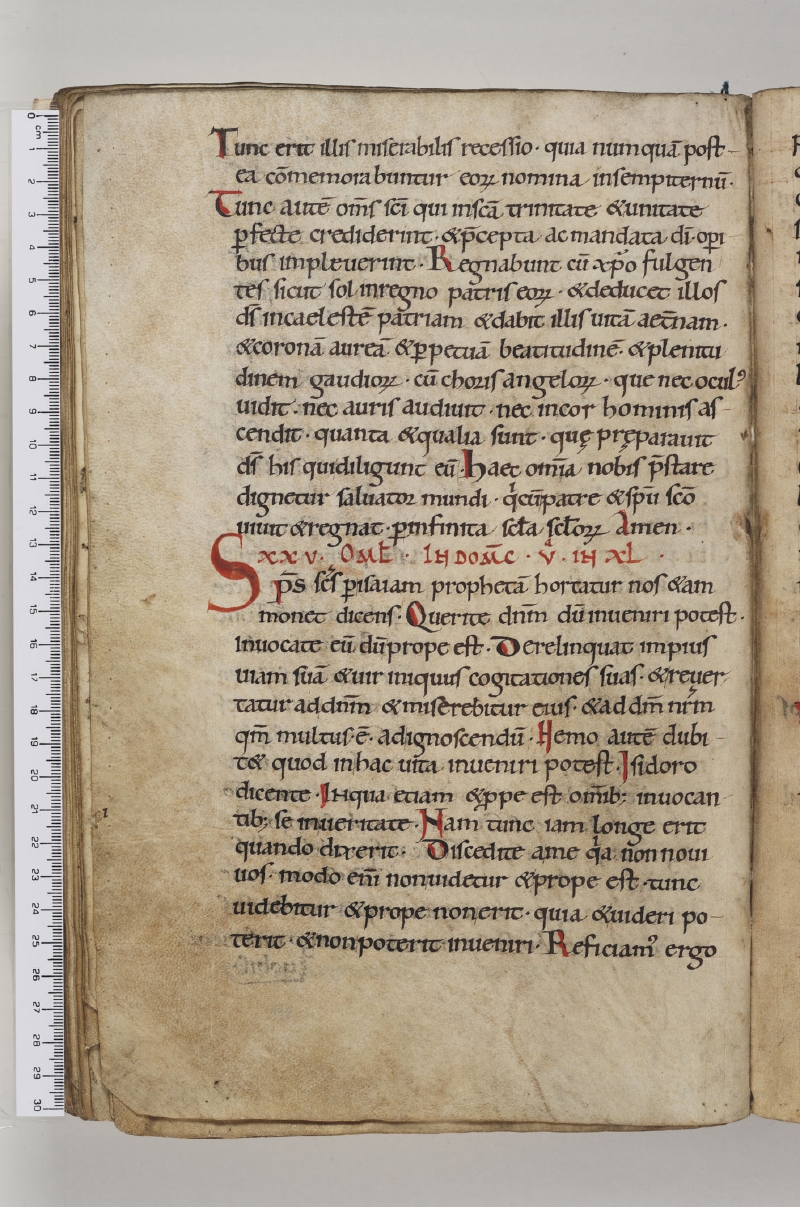 Tunc erit illis miserabilis recessio· quia numquā post-
ea cōmemorabuntur eoꝝ nomina insempiternū·
Tunc autē om̄s sc̄i qui insc̄a trinitate &unitate
ꝑfecte crediderint· &p̄cepta ac mandata dī· opi
bus impleuerint· Regnabunt cū xp̄o fulgen
tes sicut sol inregno patris eoꝝ· &deducet illos
ds̄ incaelestē patriam &dabit illis uitā aet̄nam·
&coronā aureā &ꝑpetuā beatitudinē· &plenitu
dinem gaudioꝝ· cū choris angeloꝝ· que nec oculꝰ
uidit· nec auris audiuit· nec incor hominis as-
cendit· quanta &qualia sunt· quę pręparauit
ds̄ his quidiligunt eū· haec omīa nobis p̄stare
dignetur saluator mundi· qͥcūpatre &sp̄u sc̄o
uiuit &regnat· ꝑinfinita sc̄la sc̄loꝝ Amen·
XXV· OML̄· IN DOM̄C· V· IN XL·
Sp̄s sc̄s ꝑisaiam prophetā hortatur nos &am
monet dicens· Querite dnm̄ dū inueniri potest·
Inuocate eū dūprope est· Derelinquat impius
uiam suā &uir iniquus cogitationes suas· &reuer
tatur addnm̄ &miserebitur eius· &ad dm̄ nrm̄
qm̄ multus·ē· adignoscendū· Nemo autē dubi-
t& quod inhac uita inueniri potest· Isidoro
dicente· Inqua etiam &ꝓpe est om̄ib; inuocan
tib; se inueritate· Nam tunc iam longe erit
quando dixerit· Discedite ame qͣa non noui
uos· modo eni̅ nonuidetur &prope est· tunc
uidebitur &prope nonerit· quia &uideri po-
terit· &nonpoterit inueniri· Reficiamꝰ ergo
0 cm 1 2 3 4 5 6 7 8 9 10 11 12 13 14 15 16 17 18 19 20 21 22 23 24 25 26 27 28 29 30